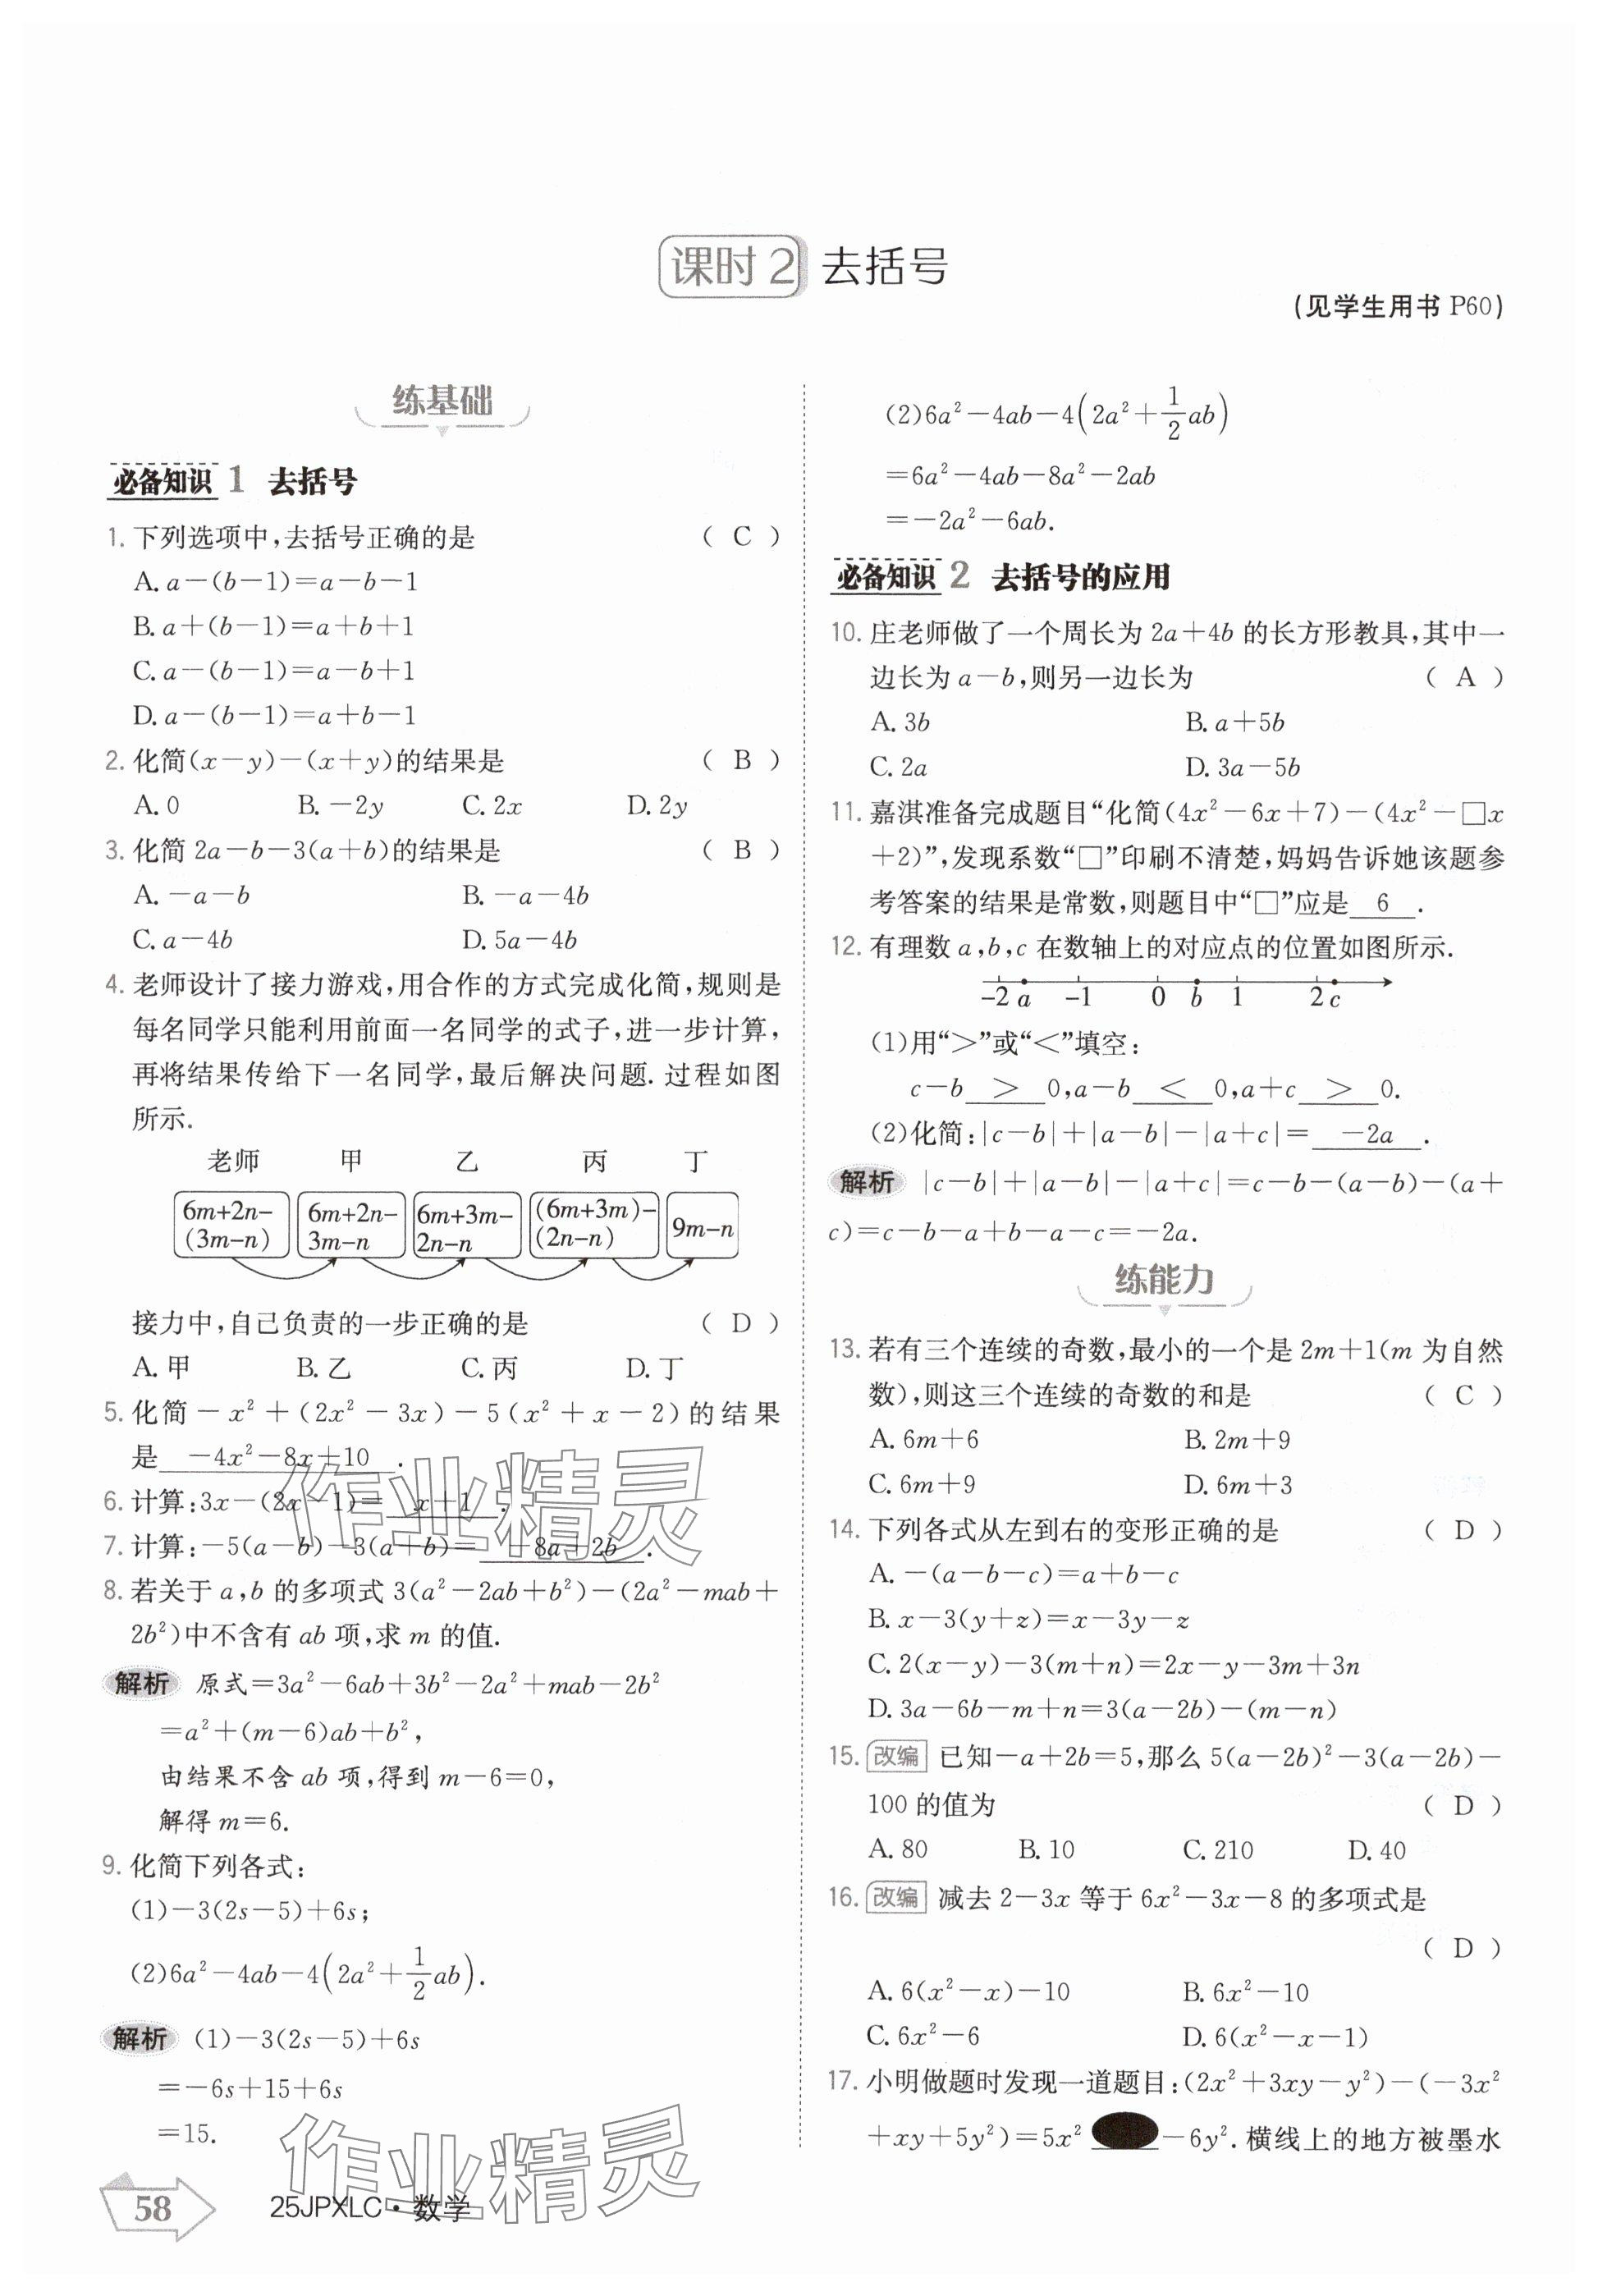 课时2 去括号
(见学生用书 P60)
练基础
必备知识 1 去括号
1. 下列选项中,去括号正确的是 ( C )
A. a-(b-1)=a-b-1
B. a+(b-1)=a+b+1
C. a-(b-1)=a-b+1
D. a-(b-1)=a+b-1
2. 化简(x-y)-(x+y)的结果是 ( B )
A. 0 B. -2y C. 2x D. 2y
3. 化简 2a-b-3(a+b)的结果是 ( B )
A. -a-b B. -a-4b
C. a-4b D. 5a-4b
4. 老师设计了接力游戏,用合作的方式完成化简,规则是
每名同学只能利用前面一名同学的式子,进一步计算,
再将结果传给下一名同学,最后解决问题. 过程如图
所示.
老师 甲 乙 丙 丁
6m+2n- 6m+2n- 6m+3m- (6m+3m)- 9m-n
(3m-n) 3m-n 2n-n (2n-n)
接力中,自己负责的一步正确的是 ( D )
A. 甲 B. 乙 C. 丙 D. 丁
5. 化简 -x²+(2x²-3x)-5(x²+x-2)的结果
是 -4x²-8x+10 .
6. 计算:3x-(2x-1)= x+1 .
7. 计算:-5(a-b)-3(a+b)= -8a+2b .
8. 若关于 a,b 的多项式 3(a²-2ab+b²)-(2a²-mab+
2b²)中不含有 ab 项,求 m 的值.
解析 原式=3a²-6ab+3b²-2a²+mab-2b²
=a²+(m-6)ab+b²,
由结果不含 ab 项,得到 m-6=0,
解得 m=6.
9. 化简下列各式:
(1)-3(2s-5)+6s;
(2)6a²-4ab-4(2a²+1/2ab).
解析 (1)-3(2s-5)+6s
=-6s+15+6s
=15.
(2)6a²-4ab-4(2a²+1/2ab)
=6a²-4ab-8a²-2ab
=-2a²-6ab.
必备知识 2 去括号的应用
10. 庄老师做了一个周长为 2a+4b 的长方形教具,其中一
边长为 a-b,则另一边长为 ( A )
A. 3b B. a+5b
C. 2a D. 3a-5b
11. 嘉淇准备完成题目“化简(4x²-6x+7)-(4x²-□x
+2)”,发现系数“□”印刷不清楚,妈妈告诉她该题参
考答案的结果是常数,则题目中“□”应是 6 .
12. 有理数 a,b,c 在数轴上的对应点的位置如图所示.
-2 a -1 0 b 1 2 c
(1)用“>”或“<”填空:
c-b > 0,a-b < 0,a+c > 0.
(2)化简:|c-b|+|a-b|-|a+c|= -2a .
解析 |c-b|+|a-b|-|a+c|=c-b-(a-b)-(a+
c)=c-b-a+b-a-c=-2a.
练能力
13. 若有三个连续的奇数,最小的一个是 2m+1(m 为自然
数),则这三个连续的奇数的和是 ( C )
A. 6m+6 B. 2m+9
C. 6m+9 D. 6m+3
14. 下列各式从左到右的变形正确的是 ( D )
A. -(a-b-c)=a+b-c
B. x-3(y+z)=x-3y-z
C. 2(x-y)-3(m+n)=2x-y-3m+3n
D. 3a-6b-m+n=3(a-2b)-(m-n)
15. 改编 已知-a+2b=5,那么 5(a-2b)²-3(a-2b)-
100 的值为 ( D )
A. 80 B. 10 C. 210 D. 40
16. 改编 减去 2-3x 等于 6x²-3x-8 的多项式是
( D )
A. 6(x²-x)-10 B. 6x²-10
C. 6x²-6 D. 6(x²-x-1)
17. 小明做题时发现一道题目:(2x²+3xy-y²)-(-3x²
+xy+5y²)=5x² -6y². 横线上的地方被墨水
58 25JPXLC·数学
作业精灵
作业精灵